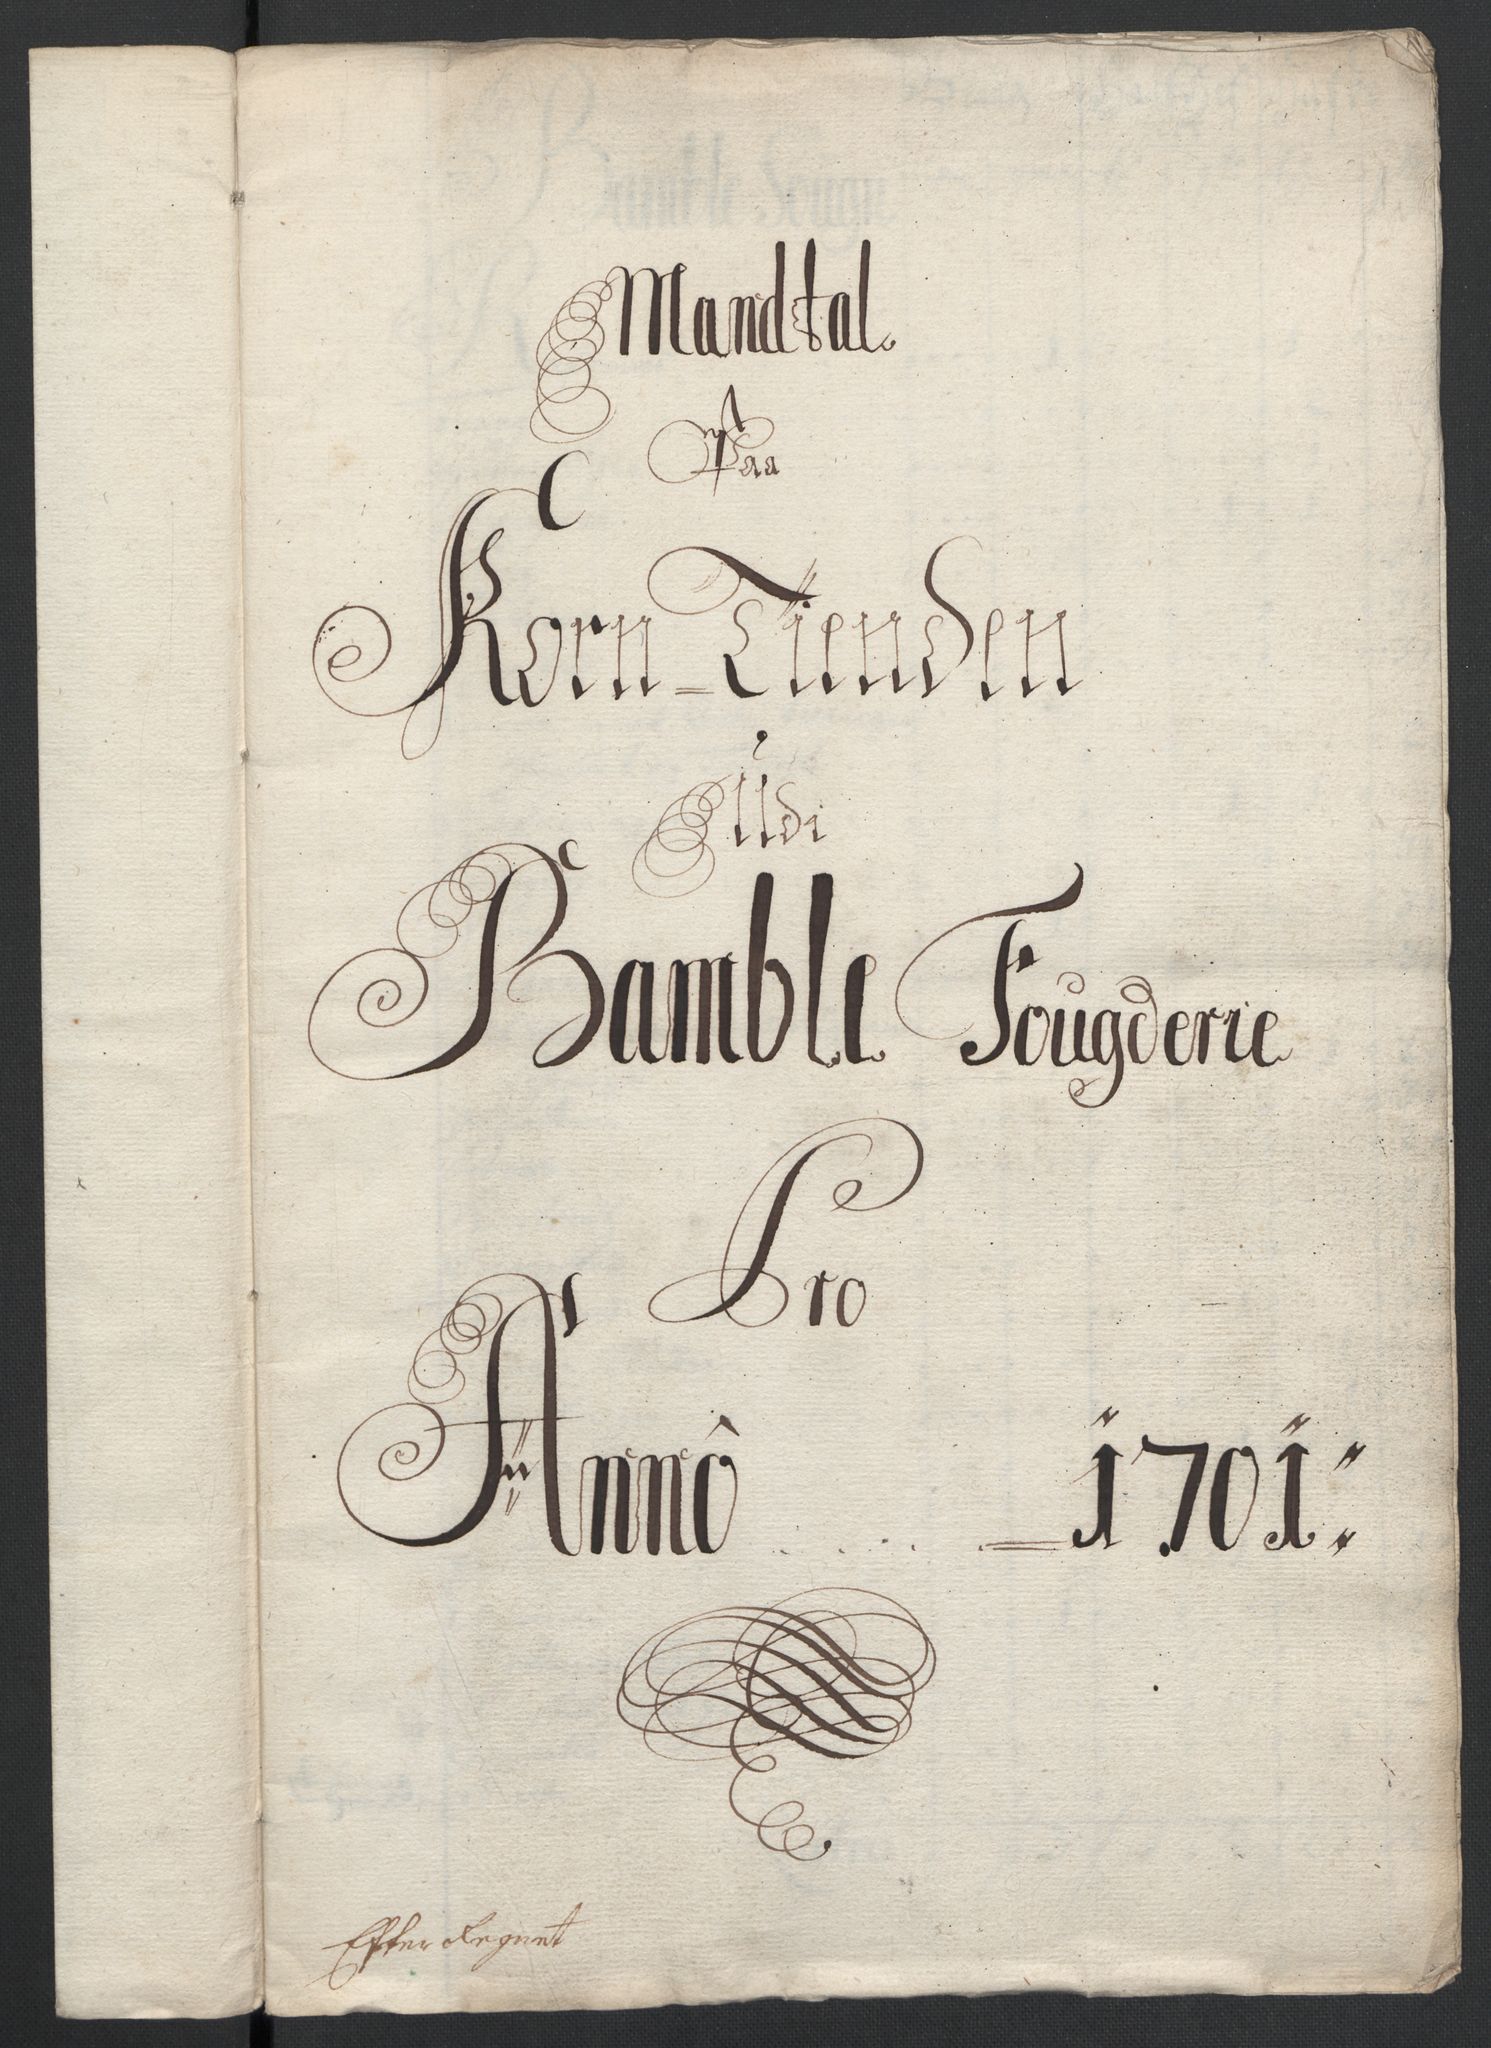 Mandtal.
Paa
Korn-Tienden
Udi
Bamble Fougderie
Pro
Annô 1701:
Efter Regnet